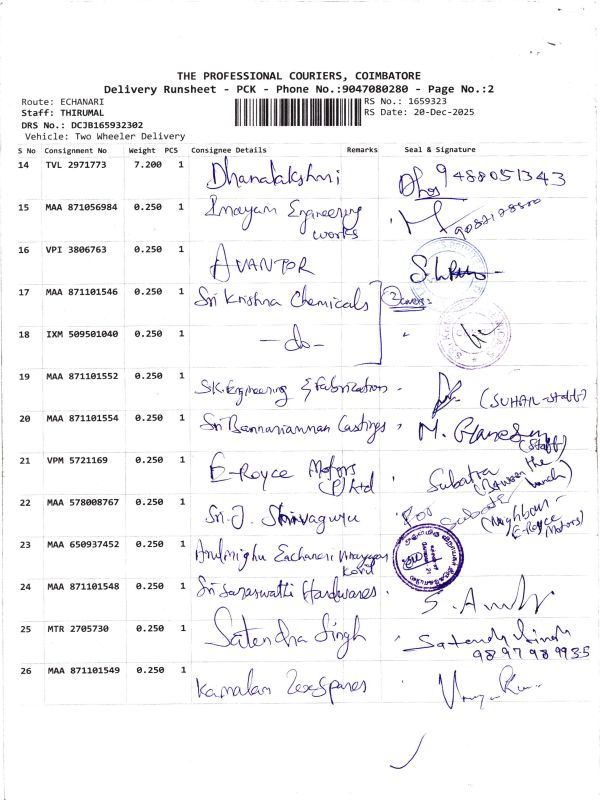 THE PROFESSIONAL COURIERS, COIMBATORE
Delivery Runsheet - PCK - Phone No.:9047080280 - Page No.:2
Route: ECHANARI
RS No.: 1659323
Staff: THIRUMAL
RS Date: 20-Dec-2025
DRS No.: DCJB165932302
Vehicle: Two Wheeler Delivery
S No Consignment No Weight PCS Consignee Details Remarks Seal & Signature
14 TVL 2971773 7.200 1 Dhanalakshmi 9488051343
15 MAA 871056984 0.250 1 Engineering
works
16 VPI 3806763 0.250 1 AVANTOR
17 MAA 871101546 0.250 1 Sri Krishna Chemicals 2 covers
18 IXM 509501040 0.250 1 -do-
19 MAA 871101552 0.250 1 S.K. Engineering & Fabrication. (SUHAIL-staff)
20 MAA 871101554 0.250 1 Sri Bannariamman Castings M. Ganesan
(Staff)
21 VPM 5721169 0.250 1 E-Royce Motors
(P) Ltd
22 MAA 578008767 0.250 1 Sri.J. Shivaguru For (Neighbour-
E-Royce
Motors)
23 MAA 650937452 0.250 1 Arulmighu Eachanari Vinayagar
Kovil
24 MAA 871101548 0.250 1 Sri Saraswathi Hardwares.
25 MTR 2705730 0.250 1 Satendra Singh
9897989935
26 MAA 871101549 0.250 1 Kamalam Texspares